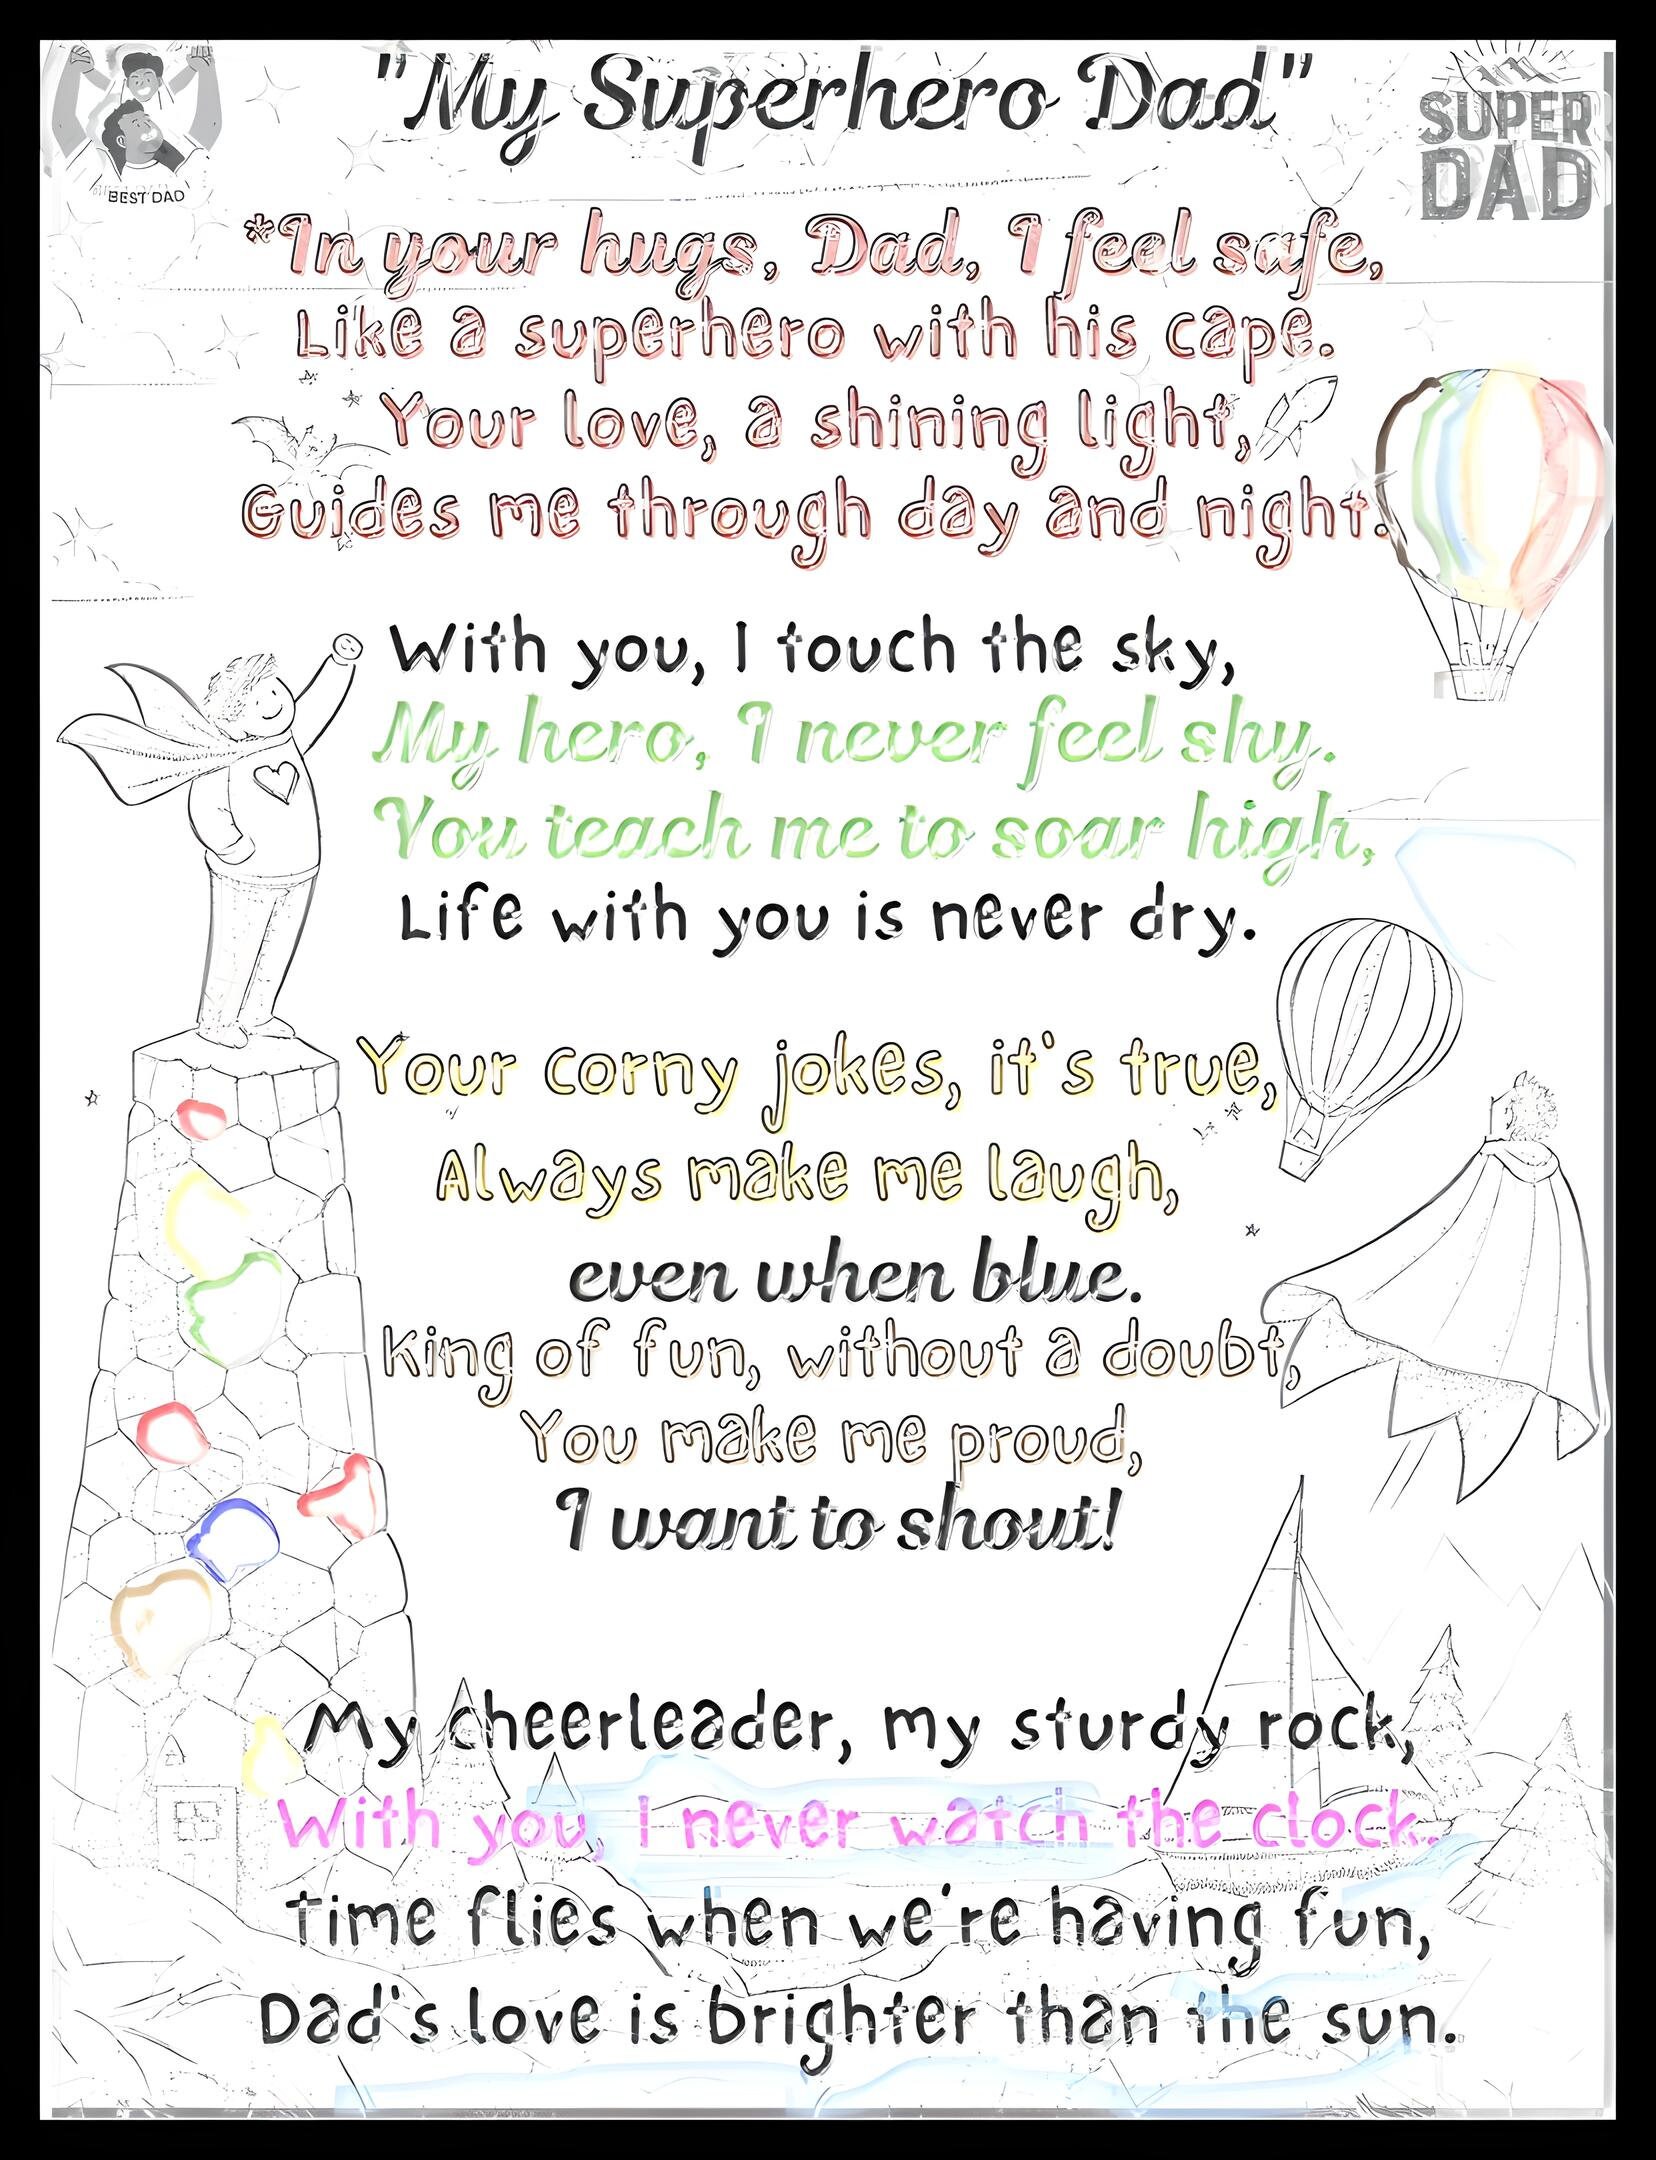 "My Superhero Dad"
BEST DAD
SUPER
DAD
*In your hugs, Dad, I feel safe,
Like a superhero with his cape.
Your love, a shining light,
Guides me through day and night.
With you, I touch the sky,
My hero, I never feel shy.
You teach me to soar high,
Life with you is never dry.
Your corny jokes, it's true,
Always make me laugh,
even when blue.
King of fun, without a doubt,
You make me proud,
I want to shout!
My cheerleader, my sturdy rock,
With you, I never watch the clock.
Time flies when we're having fun,
Dad's love is brighter than the sun.